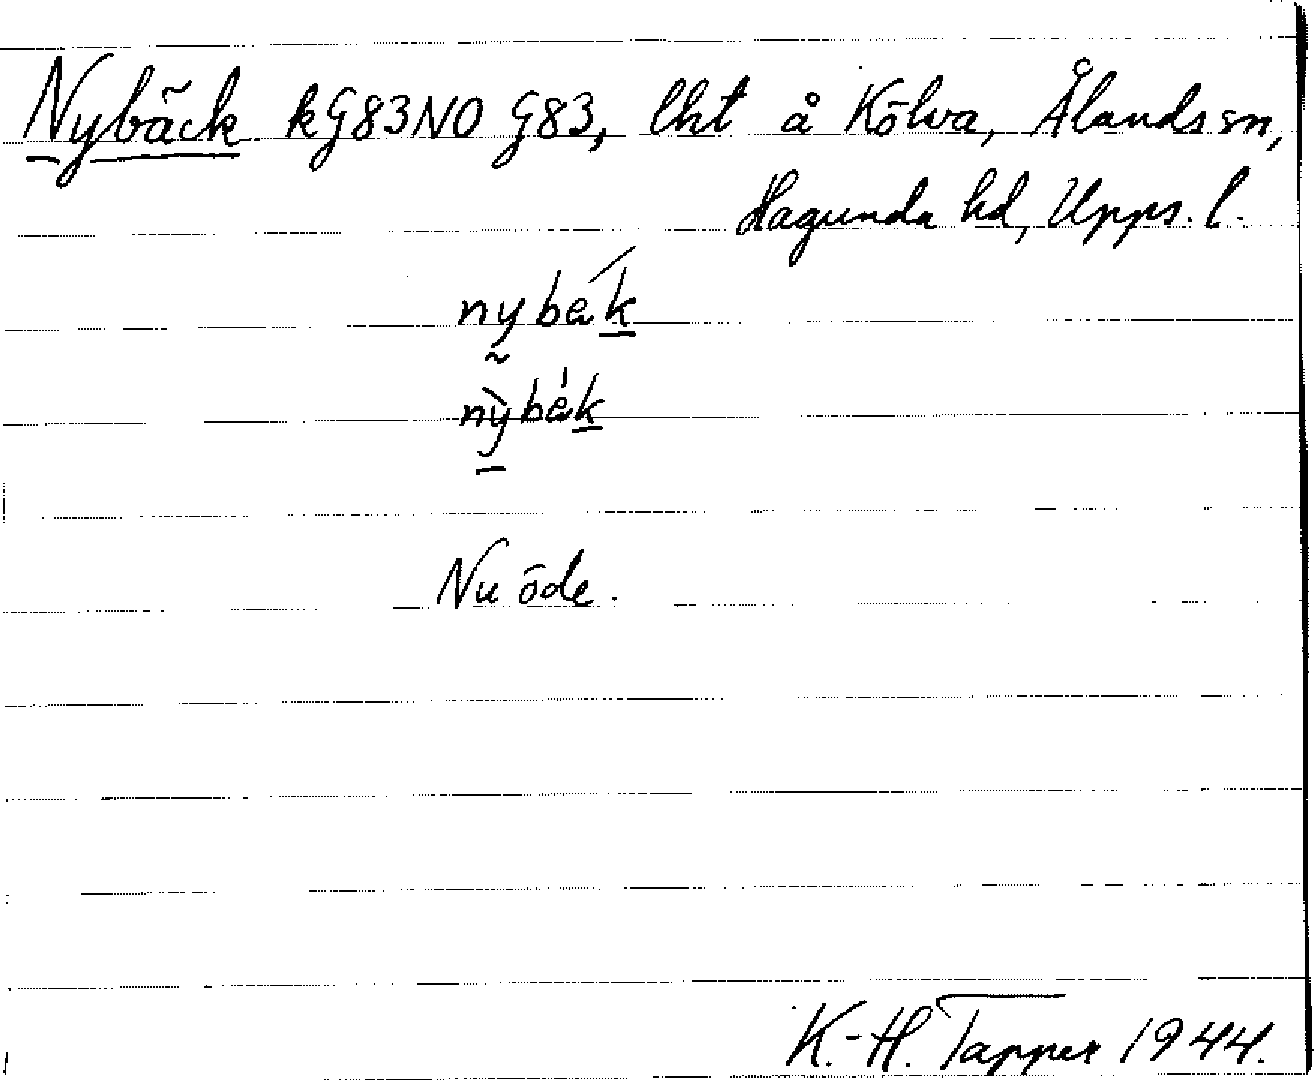 Nybäck kG83NO G83, lht å Kölva, Ålands sn,
Hagunda hd, Upps. l.
nybäk
nỳbäk
Nu öde.
K.-H. Tapper 1944.